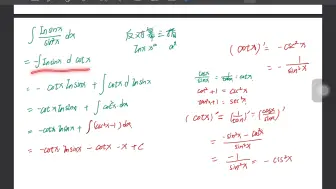 ∫ lnsinx / sin²x dx
= -∫ lnsinx d cotx
= - cotx lnsinx + ∫ cotx d lnsinx
= -cotx lnsinx + ∫ cot²x dx
= -cotx lnsinx + ∫ (csc²x-1) dx
= -cotx lnsinx - cotx - x + C
反对幂三指
lnx x^n a^x
(cotx)' = - csc²x
= - 1 / sin²x
cot²+1 = csc²x
tan²x+1 = sec²x
(cotx)' = (1/tanx)' = (cosx/sinx)'
= -sin²x - cos²x / sin²x
= -1 / sin²x = - csc²x